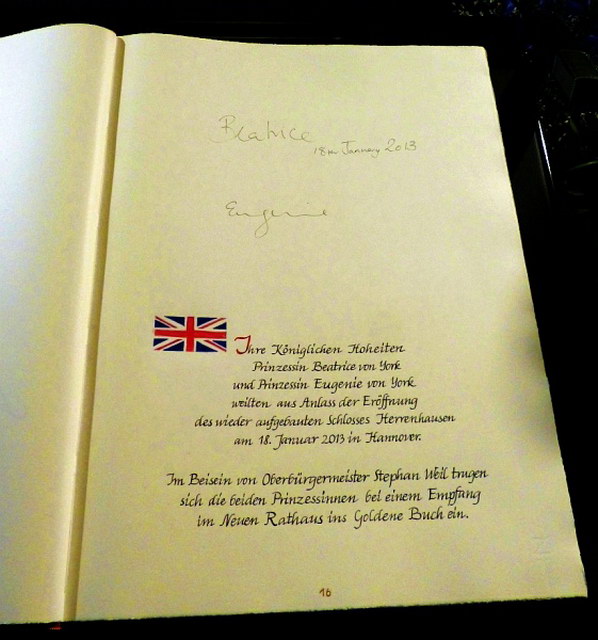 Beatrice
18th January 2013
Eugenie
Ihre Königlichen Hoheiten
Prinzessin Beatrice von York
und Prinzessin Eugenie von York
weilten aus Anlass der Eröffnung
des wieder aufgebauten Schlosses Herrenhausen
am 18. Januar 2013 in Hannover.
Im Beisein von Oberbürgermeister Stephan Weil trugen
sich die beiden Prinzessinnen bei einem Empfang
im Neuen Rathaus ins Goldene Buch ein.
16